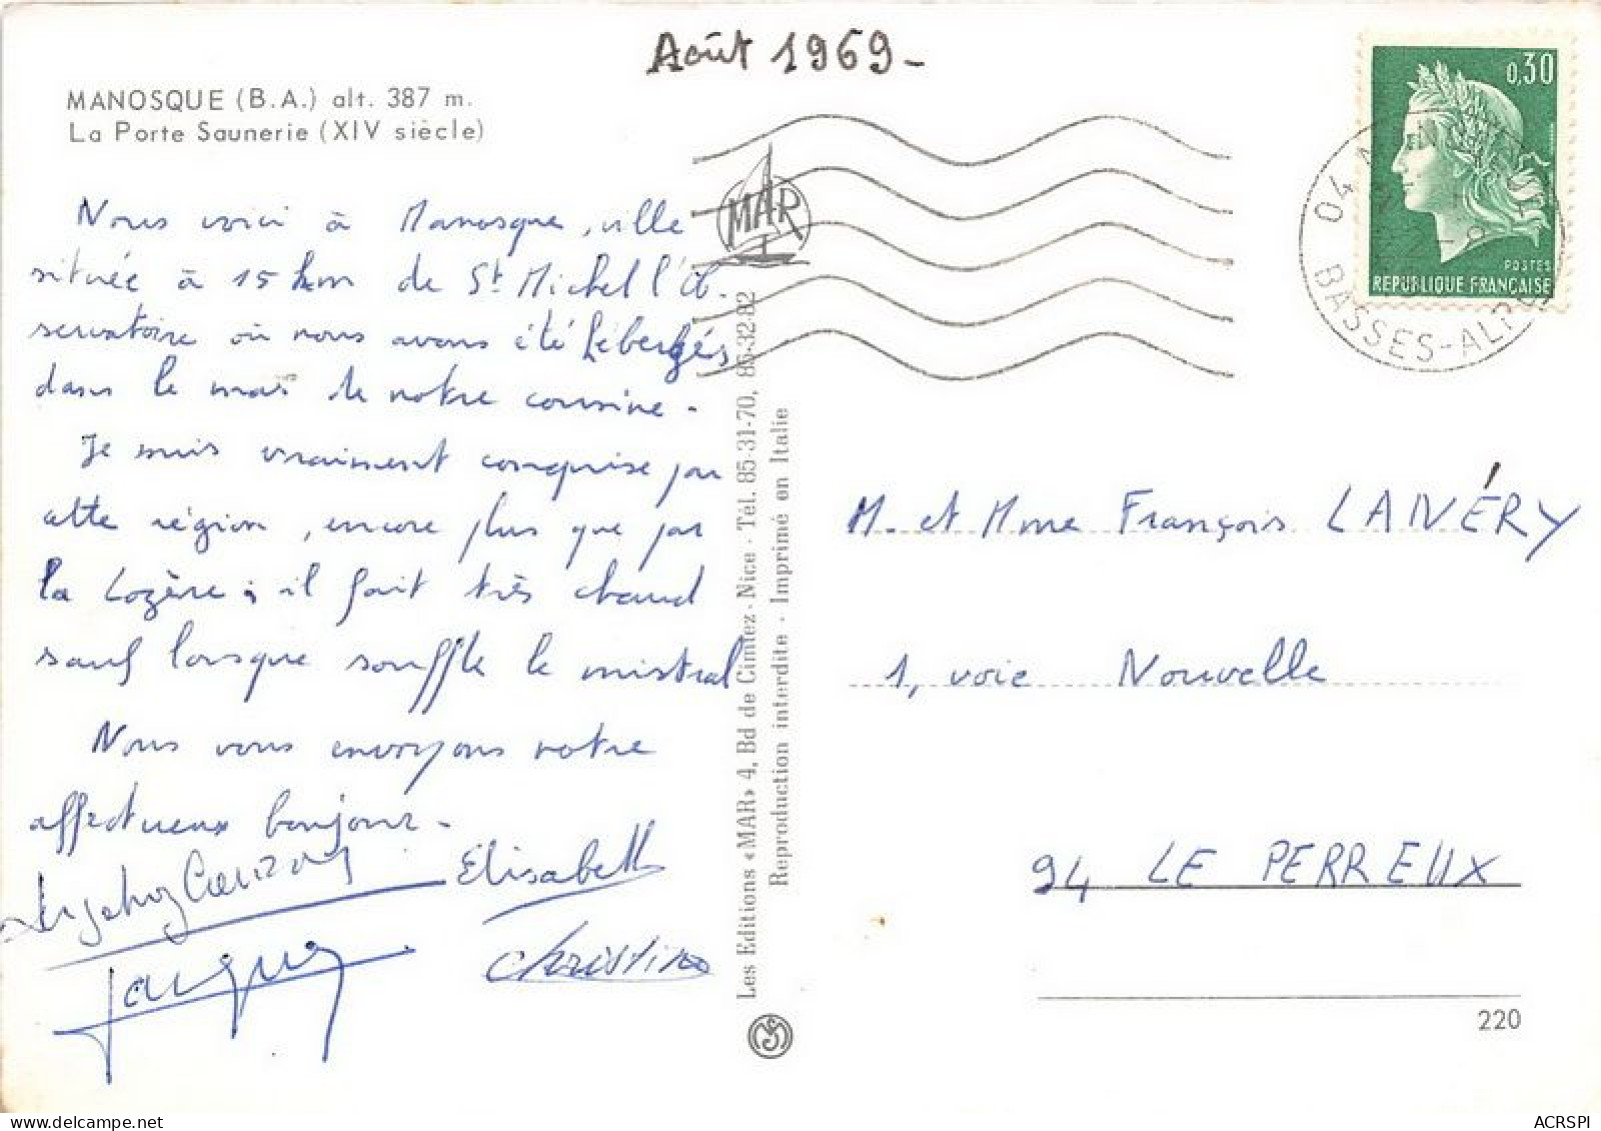 Août 1969-
MANOSQUE (B.A.) alt. 387 m.
La Porte Saunerie (XIV siècle)
Nous voici à Manosque, ville
située à 15 km de St Michel l'Ob-
servatoire où nous avons été hébergés
dans le mas de notre cousine.
Je suis vraiment conquise par
cette région, encore plus que par
la Lozère ; il fait très chaud
sauf lorsque souffle le mistral
Nous vous envoyons notre
affectueux bonjour-
Elisabeth
Jacques
Christine
MAR
Les Editions «MAR» 4, Bd de Cimiez - Nice - Tél. 85-31-70, 85-32-82
Reproduction interdite - Imprimé en Italie
0,30
POSTES
REPUBLIQUE FRANÇAISE
04
BASSES-ALPES
M. et Mme François LANVÉRY
1, voie Nouvelle
94 LE PERREUX
220
ACRSPI